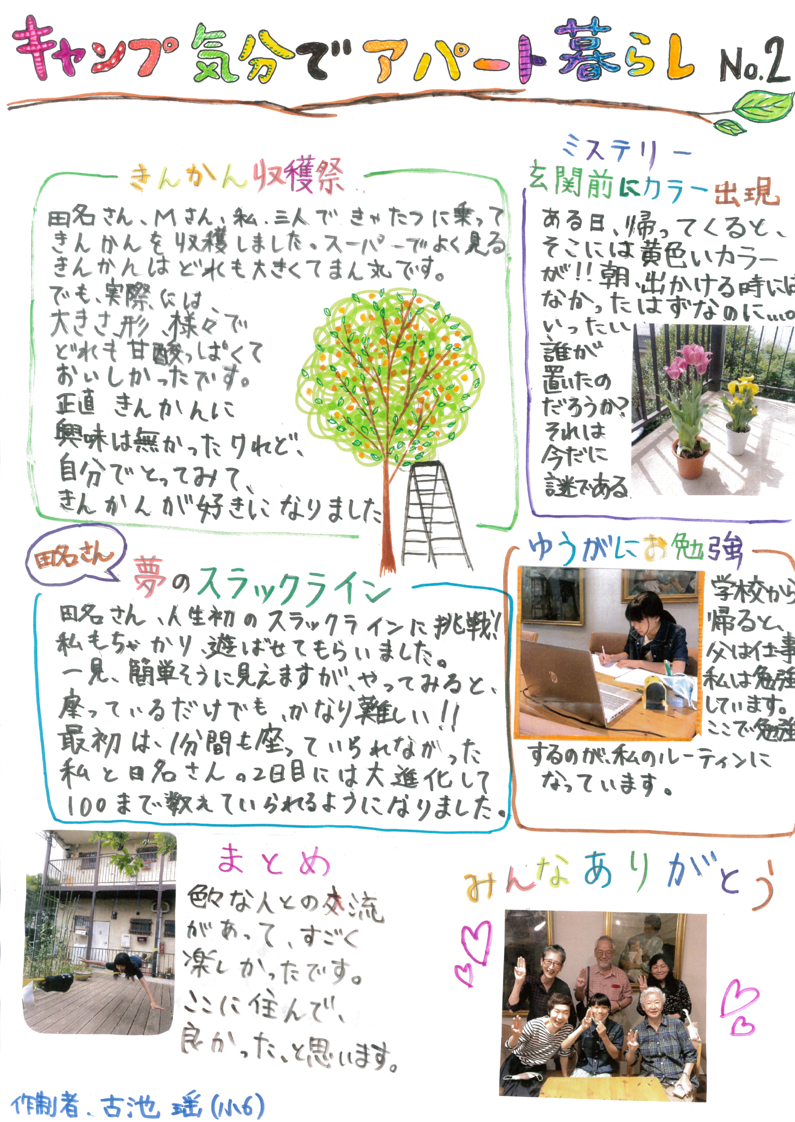 キャンプ気分でアパート暮らし No.2
きんかん収穫祭
田名さん、Mさん、私、三人できゃたつに乗って
きんかんを収穫しました。スーパーでよく見る
きんかんはどれも大きくてまん丸です。
でも、実際には、
大きさ、形、様々で
どれも甘酸っぱくて
おいしかったです。
正直きんかんに
興味は無かったけれど、
自分でとってみて、
きんかんが好きになりました
ミステリー
玄関前にカラー出現
ある日、帰ってくると、
そこには黄色いカラー
が!!朝、出かける時には
なかったはずなのに....。
いったい
誰が
置いたの
だろうか?
それは
今だに
謎である
田名さん
夢のスラックライン
田名さん、人生初のスラックラインに挑戦!
私もちゃかり、遊ばせてもらいました。
一見、簡単そうに見えますが、やってみると、
座っているだけでも、かなり難しい!!
最初は、1分間も座っていられなかった
私と田名さんの2日目には大進化して
100まで数えていられるようになりました。
ゆうがにお勉強
学校から
帰ると、
父は仕事
私は勉強
しています。
ここで勉強
するのが、私のルーティンに
なっています。
まとめ
色々な人との交流
があって、すごく
楽しかったです。
ここに住んで、
良かった、と思います。
みんなありがとう
作制者、古池 瑶(小6)